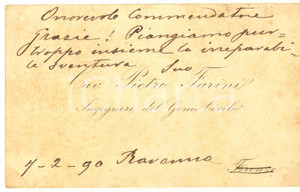 Onorevole Commendatore
grazie! Piangiamo pur-
troppo insieme la irreparabi-
le sventura Suo
Cav. Pietro Farini
Ingegnere del Genio Civile
7-2-90 Ravenna Firenze